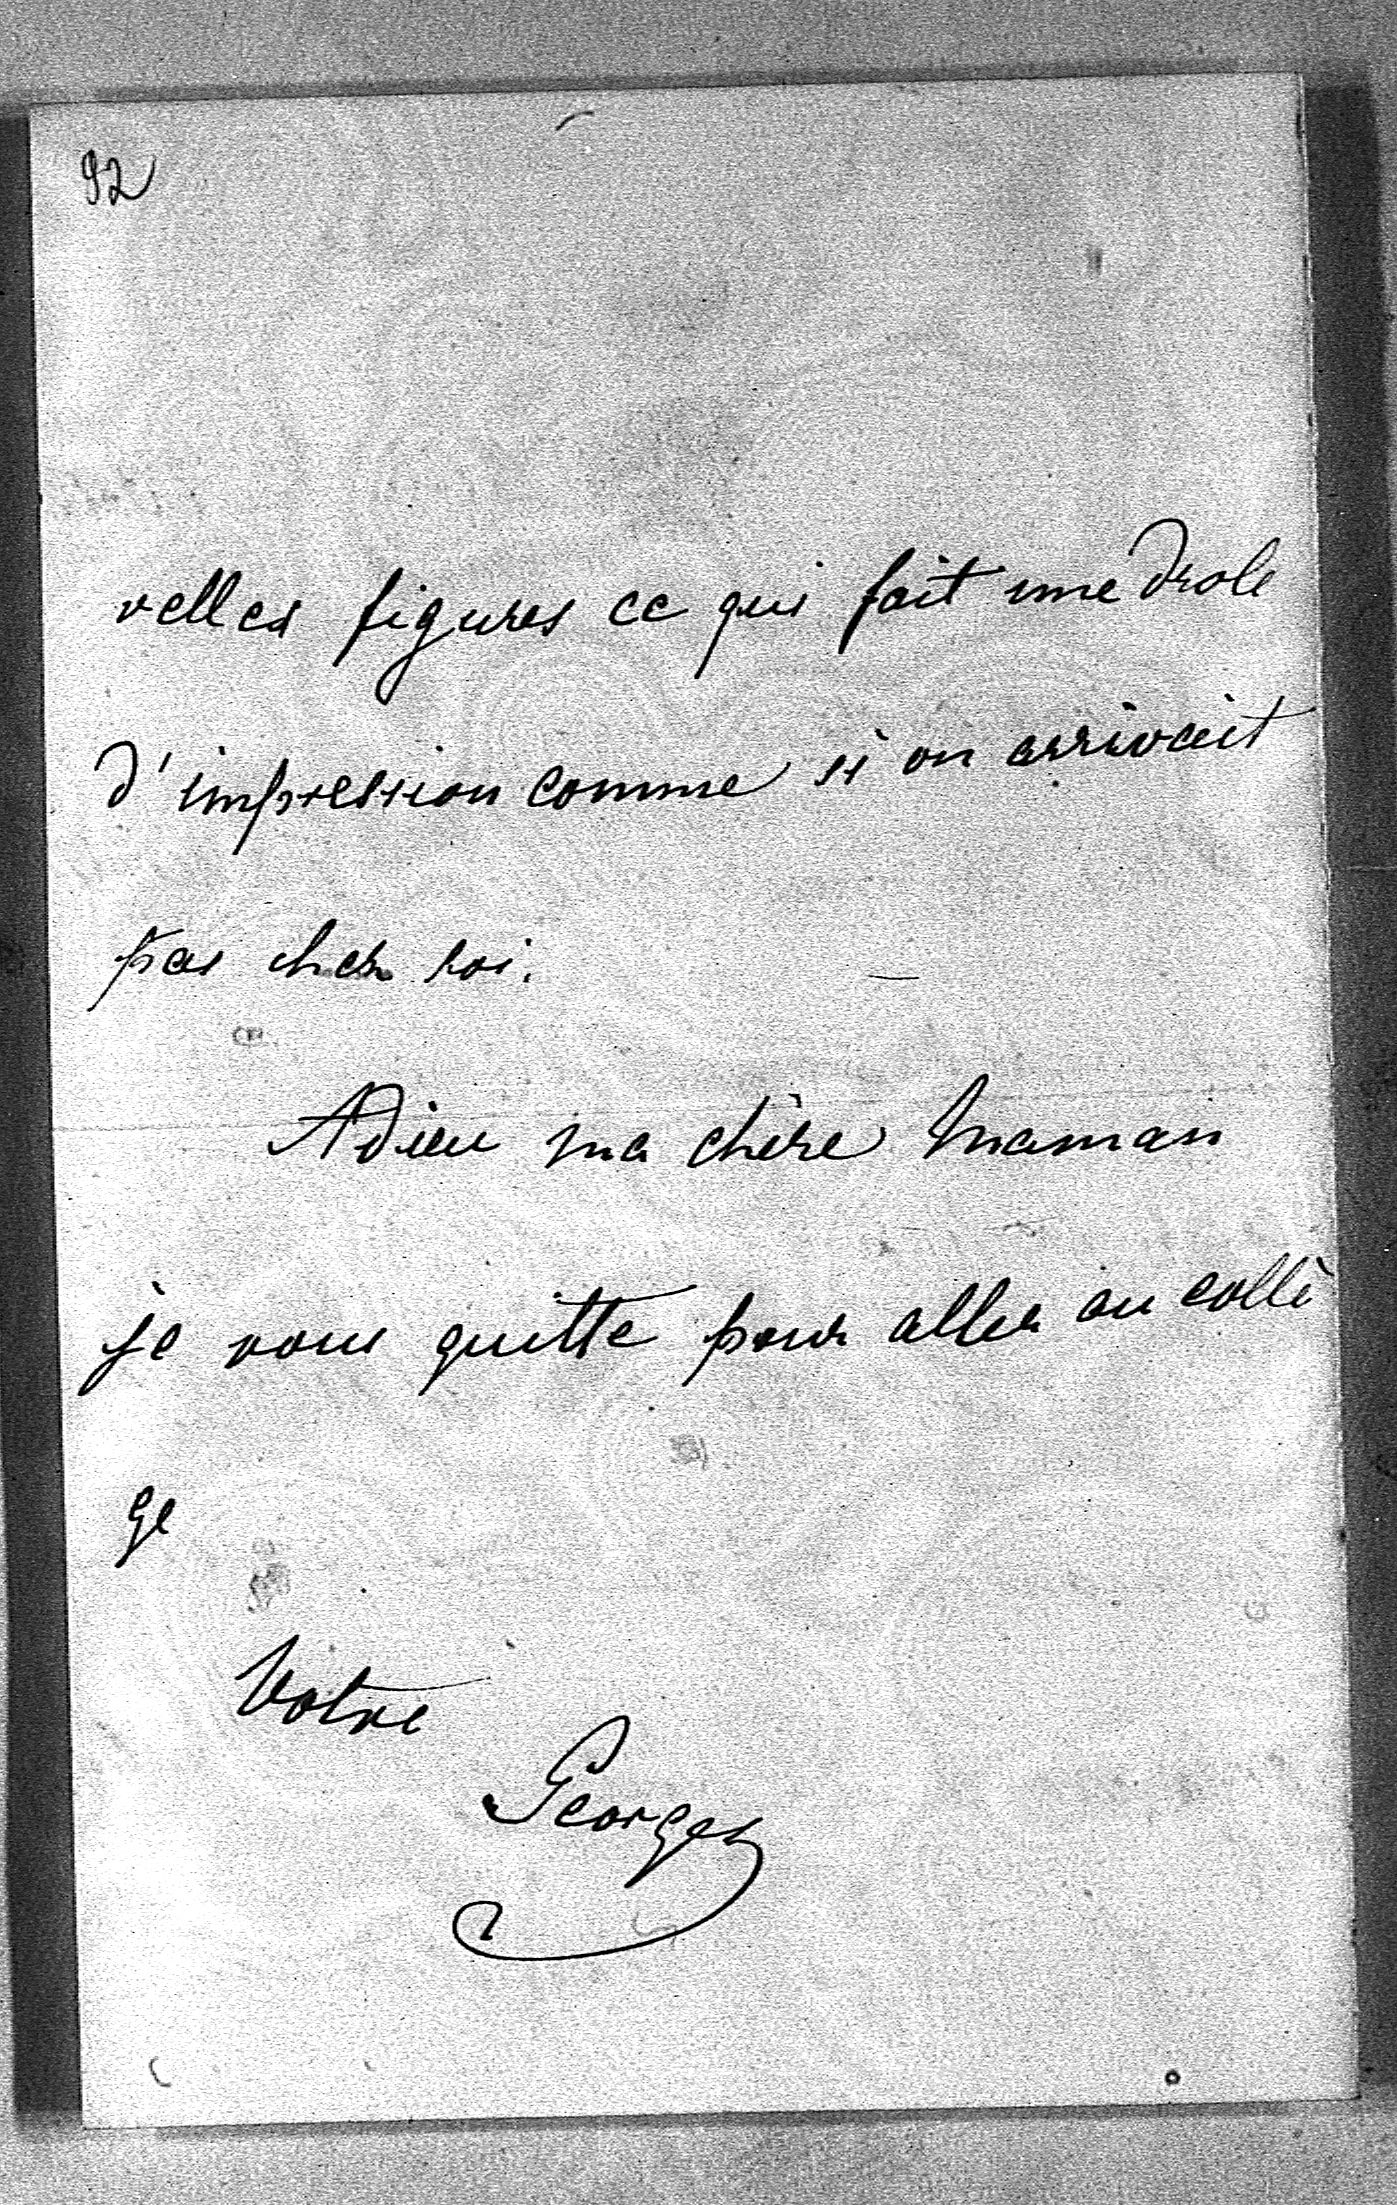 92
velles figures ce qui fait une drole
d'impression comme si on arrivait
pas chez soi.
Adieu ma chère Maman
je vous quitte pour aller au collè
ge
Votre
Georges